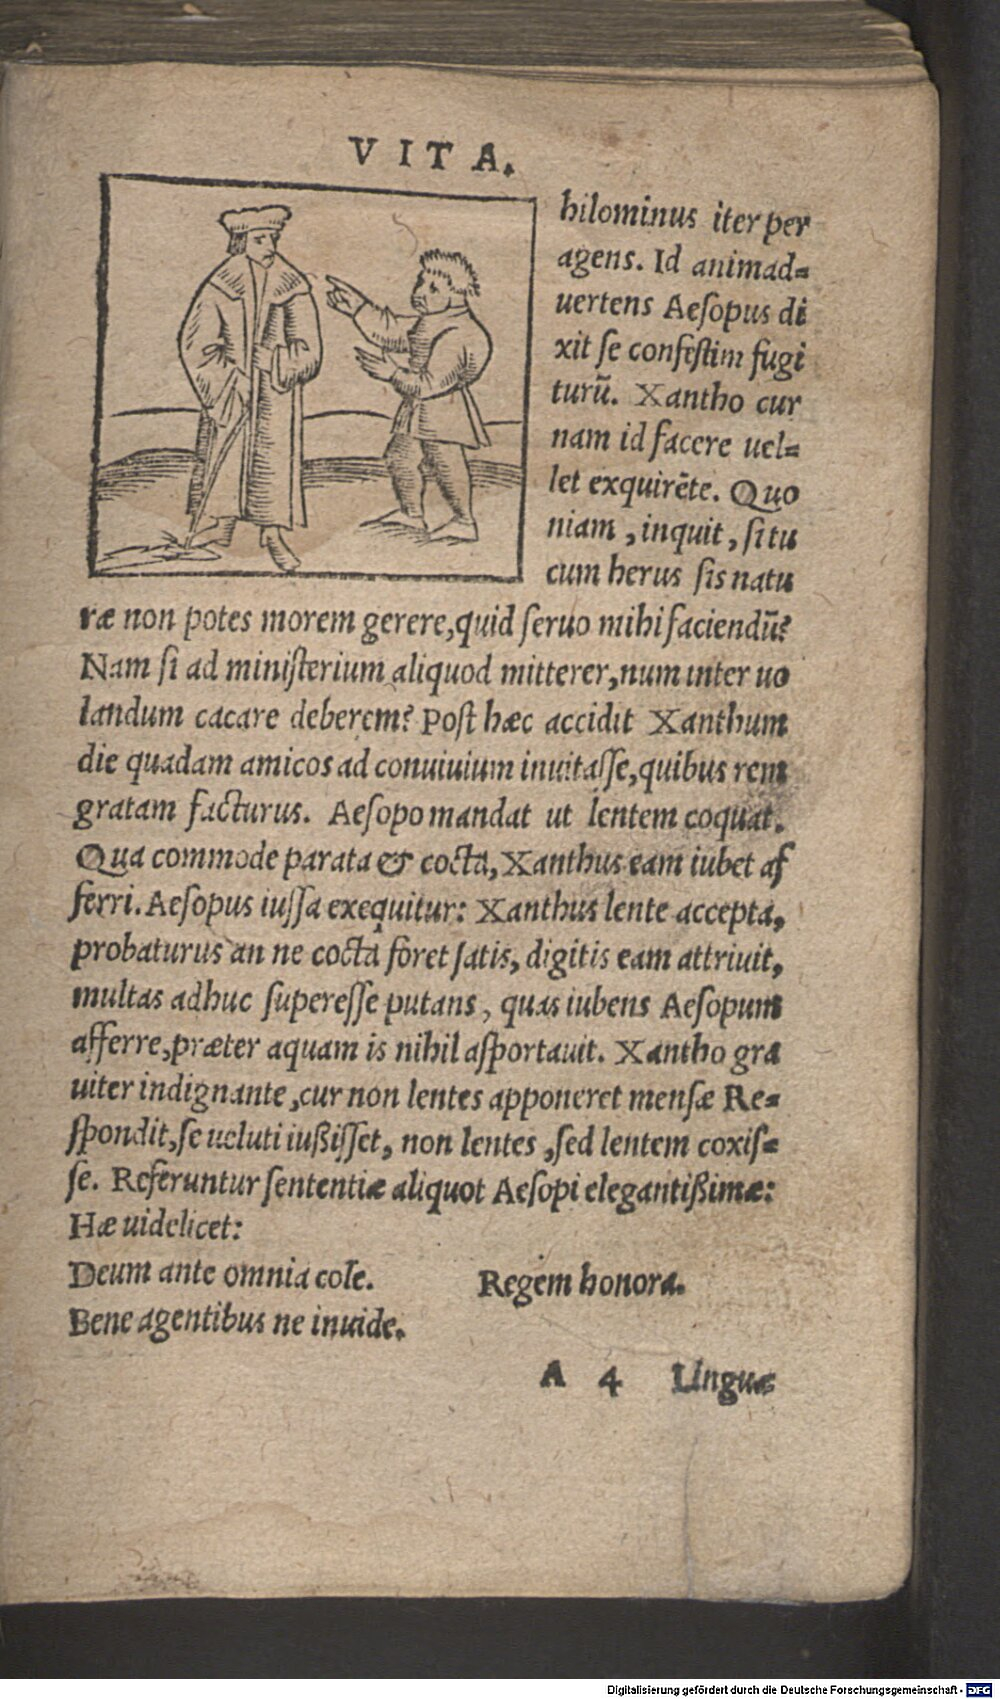 VITA.
hilominus iter per
agens. Id animad=
uertens Aeſopus di
xit ſe confeſtim fugi
turū. Xantho cur
nam id facere uel=
let exquirēte. Quo
niam, inquit, ſi tu
cum herus ſis natu
ræ non potes morem gerere, quid ſeruo mihi faciendū?
Nam ſi ad miniſterium aliquod mitterer, num inter uo
landum cacare deberem? Poſt hæc accidit Xanthum
die quadam amicos ad conuiuium inuitaſſe, quibus rem
gratam facturus. Aeſopo mandat ut lentem coquat.
Qua commode parata & cocta, Xanthus eam iubet af
ferri. Aeſopus iuſſa exequitur: Xanthus lente accepta,
probaturus an ne cocta foret ſatis, digitis eam attriuit,
multas adhuc ſupereſſe putans, quas iubens Aeſopum
afferre, præter aquam is nihil aſportauit. Xantho gra
uiter indignante, cur non lentes apponeret menſæ Re=
ſpondit, ſe ueluti iußiſſet, non lentes, ſed lentem coxiſ=
ſe. Referuntur ſententiæ aliquot Aeſopi elegantißimæ:
Hæ uidelicet:
Deum ante omnia cole. Regem honora.
Bene agentibus ne inuide.
A 4 Linguæ
Digitalisierung gefördert durch die Deutsche Forschungsgemeinschaft - DFG